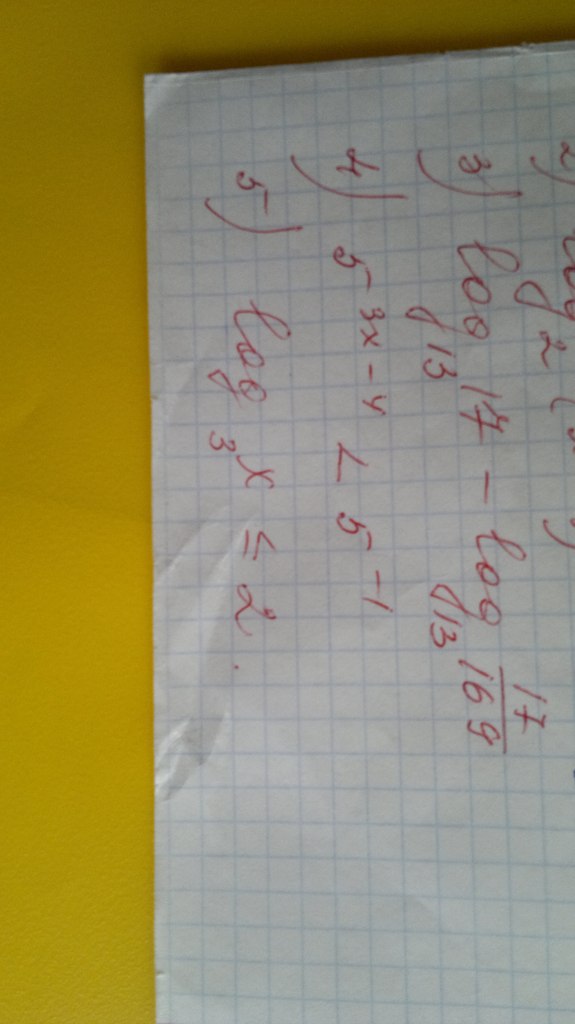 2) log₂(
3) log₁₃ 17 - log₁₃ 17/169
4) 5^(3x-4) < 5^(-1)
5) log₃ x ≤ 2.